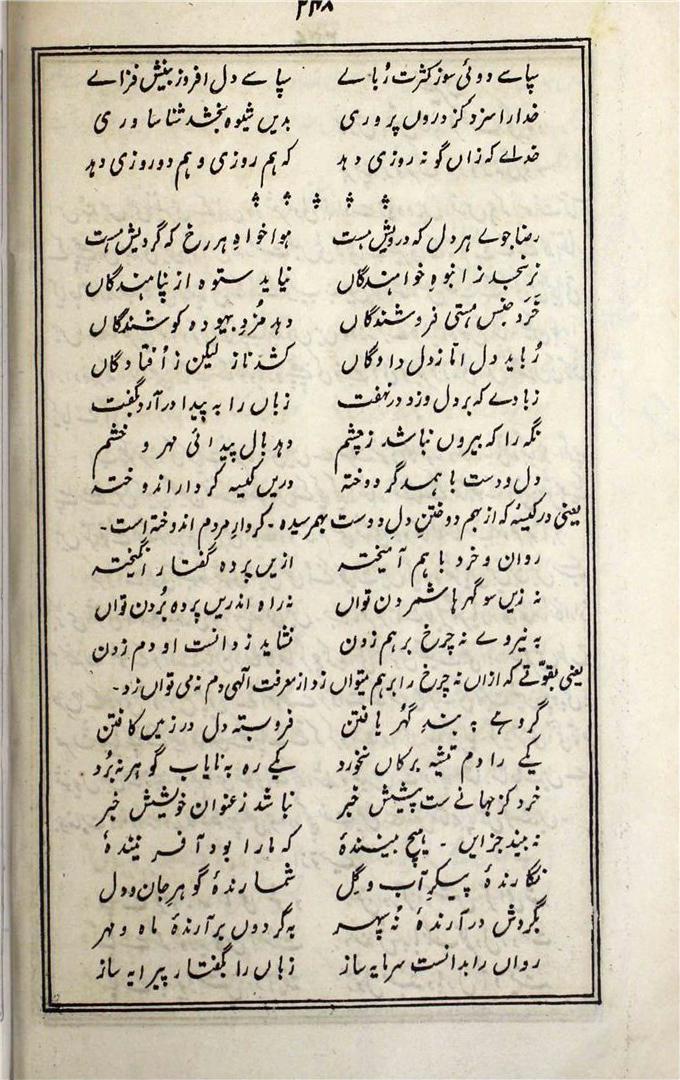 ۲۳۸
سپاسے دوئی سوز کثرت رُبائے سپاسے دل افروز بینش فزائے
خدارا سزد کز دروں پروری بدیں شیوہ بخشد شناساوری
خدائے کہ زاں گونہ روزی دہد کہ ہم روزی و ہم دو روزی دہد
رضا جوے ہر دل کہ درویش ہست ہوا خواہِ ہر رخ کہ گردیش ہست
نرنجد ز انبوہِ خواہندگاں نیاید ستوہ از پناہندگاں
خَرَد جنس ہستی فروشندگاں دہد مُزدِ بیہودہ کوشندگاں
رُباید دل اما ز دل دادگاں کشد ناز لیکن ز اُفتادگاں
زبادے کہ بر دل وزد در نہفت زباں را بہ پیدا در آرد بگفت
نگہ را کہ بیروں نباشد ز چشم دہد بال پیدائی مہر و خشم
دل و دست با ہمدگر دوختہ دریں کیسہ کردار اندوختہ
یعنی در کیسہ کہ از بہم دوختنِ دل و دست بہمرسیدہ ۔ کردارِ مردم اندوختہ است۔
روان و خرد با ہم آمیختہ ازیں پردہ گفتار انگیختہ
نہ زیں سو گہرہا شمردن تواں نہ راہ اندریں پردہ بُردن تواں
بہ نیروے نہ چرخ برہم زدن نشاید ز دانست او دم زدن
یعنی بقوّتے کہ ازاں نہ چرخ را برہم میتواں زد از معرفت الٰہی دم نمی تواں زد۔
گروہے بہ بندِ گہُر یافتن فروبستہ دل در زمیں کافتن
یکے را دم تیشہ بر کاں نخورد یکے رہ بہ نایاب گوہر نہ بُرد
خرد کز جہانے ست پیشش خبر نباشد ز عنوان خویشش خبر
نہ بیند جز ایں ۔ ہیچ بینندۂ کہ ما را بود آفرینندۂ
نگارندۂ پیکرِ آب و گِل شمارندۂ گوہرِ جان و دل
بگردوش در آرندۂ نُہ سپہر بہ گردوں بر آرندۂ ماہ و مہر
رواں را بدانست سرمایہ ساز زباں را بگفتار پیرایہ ساز